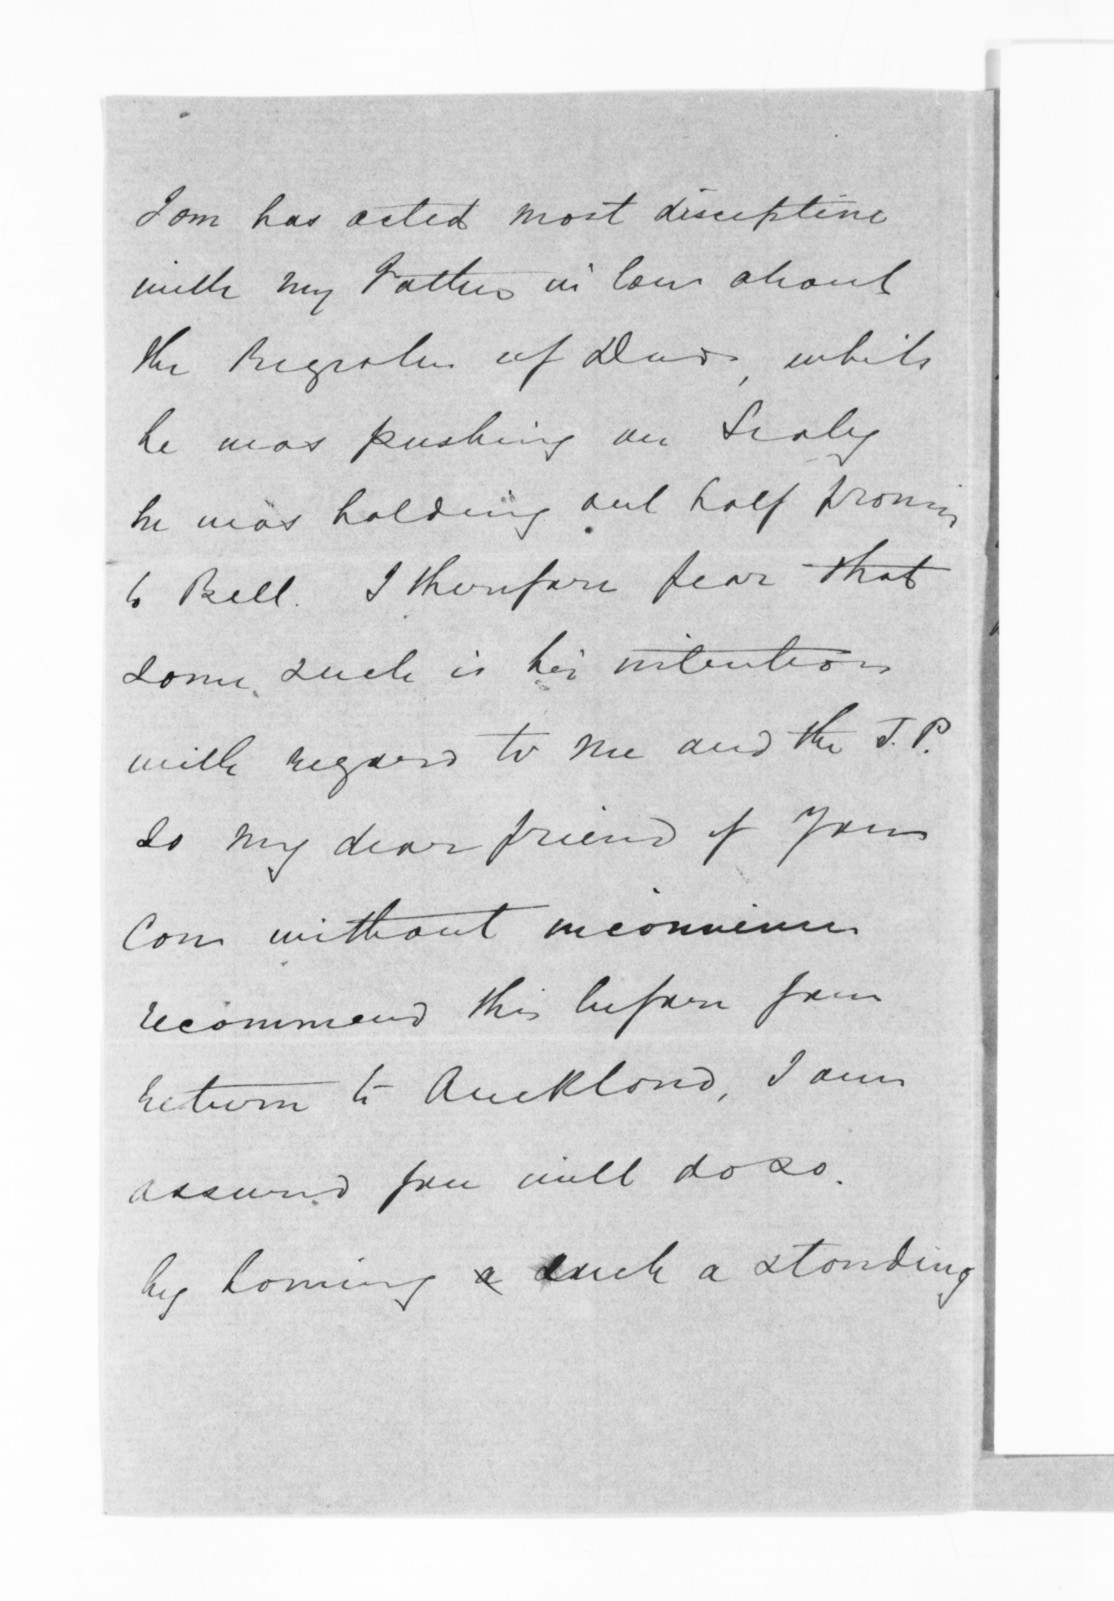 Tom has acted most disceptive
with my Father in law about
the Registrar of Deeds, whils
he was pushing on Sealy
he was holding out half promis
to Bell. I therefore fear that
some such is his intention
with regard to me and the J.P.
So my dear friend if you
can without inconvenience
recommend this before you
return to Auckland, I am
assured you will do so.
by having a such a standing